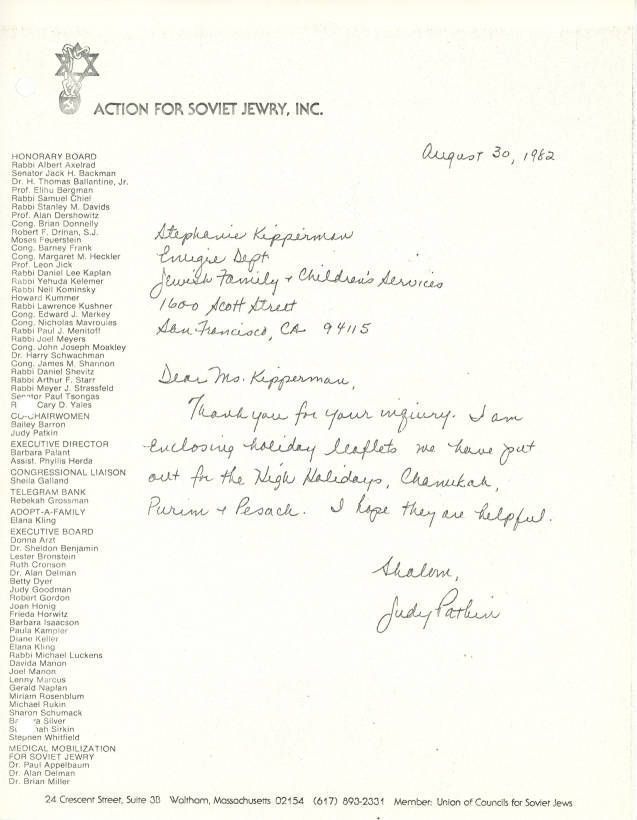 ACTION FOR SOVIET JEWRY, INC.
August 30, 1982
HONORARY BOARD
Rabbi Albert Axelrad
Senator Jack H. Backman
Dr. H. Thomas Ballantine, Jr.
Prof. Elihu Bergman
Rabbi Samuel Chiel
Rabbi Stanley M. Davids
Prof. Alan Dershowitz
Cong. Brian Donnelly
Robert F. Drinan, S.J.
Moses Feuerstein
Cong. Barney Frank
Cong. Margaret M. Heckler
Prof. Leon Jick
Rabbi Daniel Lee Kaplan
Rabbi Yehuda Kelemer
Rabbi Neil Kominsky
Howard Kummer
Rabbi Lawrence Kushner
Cong. Edward J. Markey
Cong. Nicholas Mavroules
Rabbi Paul J. Menitoff
Rabbi Joel Meyers
Cong. John Joseph Moakley
Dr. Harry Schwachman
Cong. James M. Shannon
Rabbi Daniel Shevitz
Rabbi Arthur F. Starr
Rabbi Meyer J. Strassfeld
Senator Paul Tsongas
R Cary D. Yales
CO-CHAIRWOMEN
Bailey Barron
Judy Patkin
EXECUTIVE DIRECTOR
Barbara Palant
Assist. Phyllis Herda
CONGRESSIONAL LIAISON
Sheila Galland
TELEGRAM BANK
Rebekah Grossman
ADOPT-A-FAMILY
Elana Kling
EXECUTIVE BOARD
Donna Arzt
Dr. Sheldon Benjamin
Lester Bronstein
Ruth Cronson
Dr. Alan Delman
Betty Dyer
Judy Goodman
Robert Gordon
Joan Honig
Frieda Horwitz
Barbara Isaacson
Paula Kampler
Diane Keller
Elana Kling
Rabbi Michael Luckens
Davida Manon
Joel Manon
Lenny Marcus
Gerald Naplan
Miriam Rosenblum
Michael Rukin
Sharon Schumack
Silver
Sirkin
Stephen Whitfield
MEDICAL MOBILIZATION
FOR SOVIET JEWRY
Dr. Paul Appelbaum
Dr. Alan Delman
Dr. Brian Miller
Stephanie Kipperman
Emigre Dept
Jewish Family + Children's Services
1600 Scott Street
San Francisco, CA 94115
Dear Ms. Kipperman,
Thank you for your inquiry. I am
enclosing holiday leaflets we have put
out for the High Holidays, Chanukah,
Purim + Pesach. I hope they are helpful.
Shalom,
Judy Patkin
24 Crescent Street, Suite 3B Waltham, Massachusetts 02154 (617) 893-2331 Member: Union of Councils for Soviet Jews